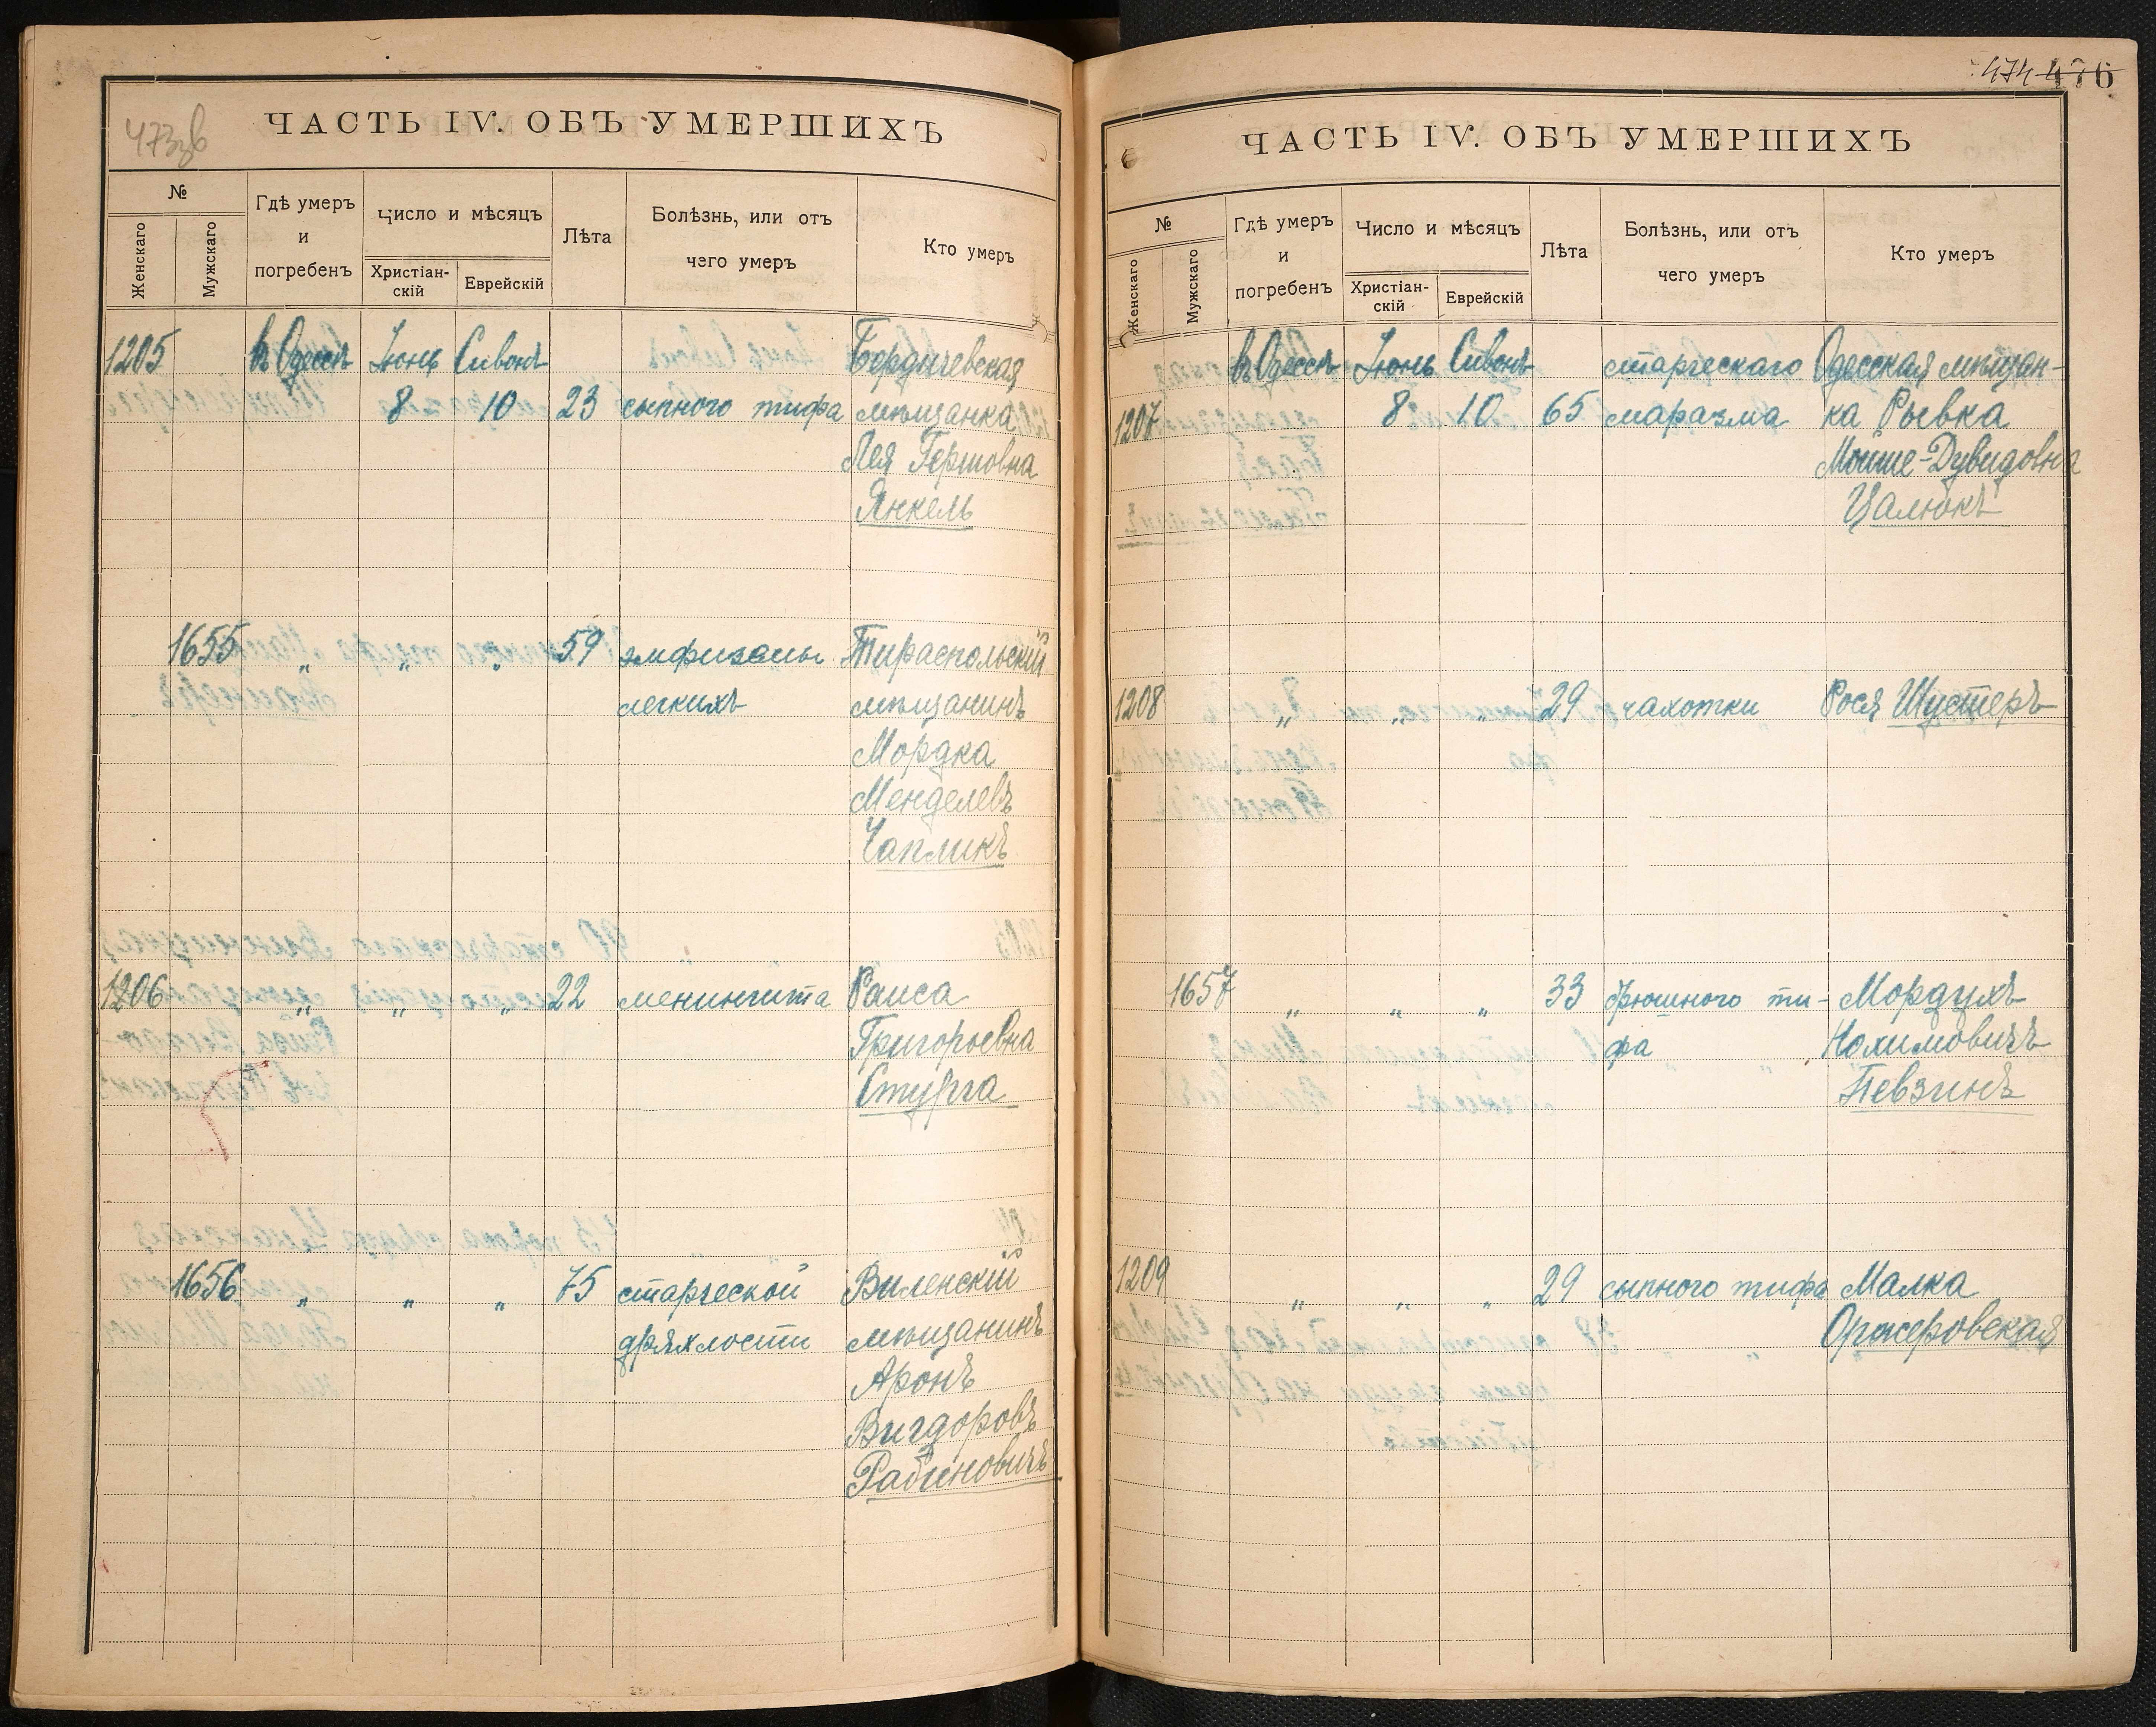 473зв
ЧАСТЬ IV. ОБЪ УМЕРШИХЪ
№
Женскаго
Мужскаго
Гдѣ умеръ
и
погребенъ
Число и мѣсяцъ
Христіан-
скій
Еврейскій
Лѣта
Болѣзнь, или отъ
чего умеръ
Кто умеръ
1205 въ Одессѣ Іюнь Сивонъ Бердичевская
8 10 23 сыпного тифа мѣщанка
Лея Гершовна
Янкель
1655 „ „ „ 59 эмфиземы Тираспольскій
легкихъ мѣщанинъ
Мордка
Менделевъ
Чапликъ
1206 „ „ „ 22 менингита Раиса
Григорьевна
Стурга
1656 „ „ „ 75 старческой Виленскій
дряхлости мѣщанинъ
Аронъ
Вигдоровъ
Рабиновичъ
474 476
ЧАСТЬ IV. ОБЪ УМЕРШИХЪ
№
Женскаго
Мужскаго
Гдѣ умеръ
и
погребенъ
Число и мѣсяцъ
Христіан-
скій
Еврейскій
Лѣта
Болѣзнь, или отъ
чего умеръ
Кто умеръ
въ Одессѣ Іюнь Сивонъ старческаго Одесская мѣщан-
1207 8 10 65 маразма ка Рывка
Моише-Дувидовна
Цалюкъ
1208 „ „ „ 29 чахотки Рося Шустеръ
1657 „ „ „ 33 брюшного ти- Мордухъ
фа Нохимовичъ
Певзинъ
1209 „ „ „ 29 сыпного тифа Малка
Оржеровская